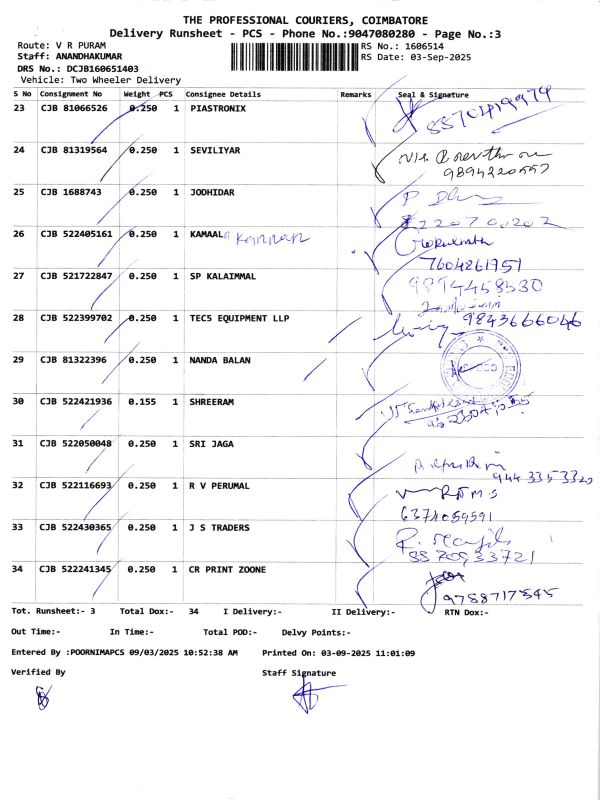 THE PROFESSIONAL COURIERS, COIMBATORE
Delivery Runsheet - PCS - Phone No.:9047080280 - Page No.:3
Route: V R PURAM RS No.: 1606514
Staff: ANANDHAKUMAR RS Date: 03-Sep-2025
DRS No.: DCJB160651403
Vehicle: Two Wheeler Delivery
S No Consignment No Weight PCS Consignee Details Remarks Seal & Signature
23 CJB 81066526 0.250 1 PIASTRONIX
24 CJB 81319564 0.250 1 SEVILIYAR
9894220557
25 CJB 1688743 0.250 1 JODHIDAR
26 CJB 522405161 0.250 1 KAMAAL Kannan
7604261751
27 CJB 521722847 0.250 1 SP KALAIMMAL 9894458530
28 CJB 522399702 0.250 1 TEC5 EQUIPMENT LLP 9843666046
29 CJB 81322396 0.250 1 NANDA BALAN
30 CJB 522421936 0.155 1 SHREERAM
31 CJB 522050048 0.250 1 SRI JAGA
9443353320
32 CJB 522116693 0.250 1 R V PERUMAL
6374059591
33 CJB 522430365 0.250 1 J S TRADERS
8870933721
34 CJB 522241345 0.250 1 CR PRINT ZOONE
9788717545
Tot. Runsheet:- 3 Total Dox:- 34 I Delivery:- II Delivery:- RTN Dox:-
Out Time:- In Time:- Total POD:- Delvy Points:-
Entered By :POORNIMAPCS 09/03/2025 10:52:38 AM Printed On: 03-09-2025 11:01:09
Verified By Staff Signature